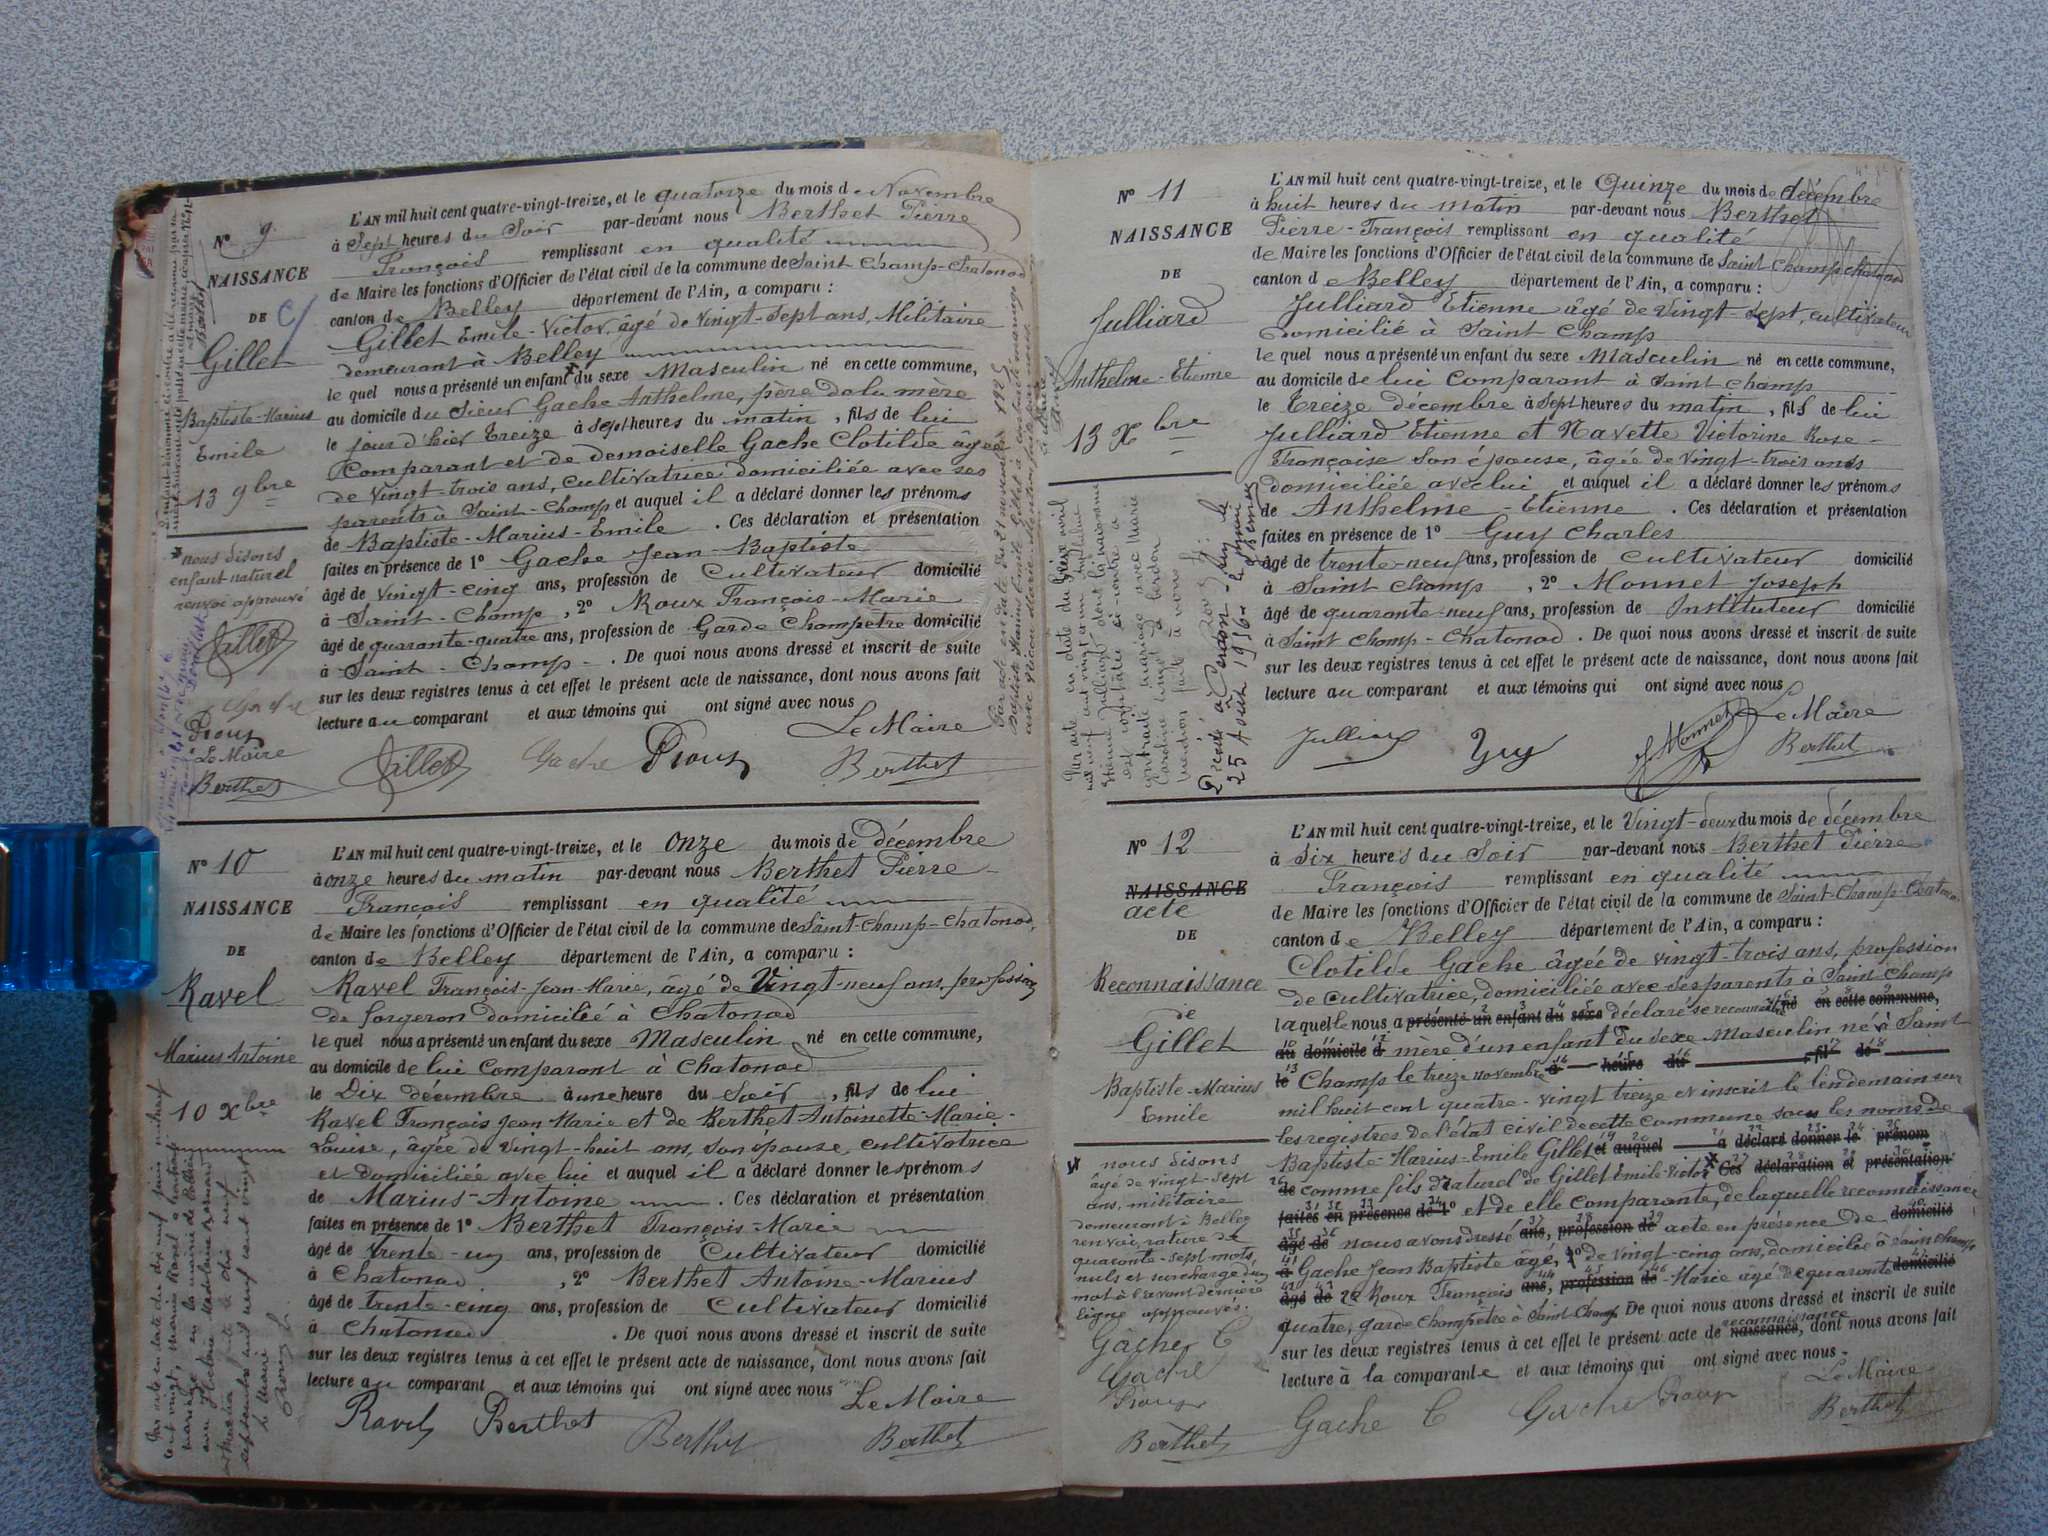 Nº 9
NAISSANCE
DE
Gillet
Baptiste-Marius
Emile
13 9bre
nous disons
enfant naturel
renvoi approuvé
Gillet
Gache
Proux
Le Maire
Berthet
L'AN mil huit cent quatre-vingt-treize, et le quatorze du mois de Novembre
à Sept heures du Soir par-devant nous Berthet Pierre
François remplissant en qualité
de Maire les fonctions d'Officier de l'état civil de la commune de Saint Champ-Chatonod
canton de Belley département de l'Ain, a comparu :
Gillet Emile-Victor, âgé de vingt-sept ans, Militaire
demeurant à Belley
le quel nous a présenté un enfant du sexe Masculin né en cette commune,
au domicile du Sieur Gache Anthelme, père de la mère
le jour d'hier Treize à sept heures du matin, fils de lui
Comparant et de demoiselle Gache Clotilde âgée
de vingt-trois ans, cultivatrice domiciliée avec ses
parents à Saint-Champ et auquel il a déclaré donner les prénoms
de Baptiste-Marius-Emile . Ces déclaration et présentation
faites en présence de 1º Gache Jean-Baptiste
âgé de vingt-cinq ans, profession de Cultivateur domicilié
à Saint-Champ, 2º Roux François-Marie
âgé de quarante-quatre ans, profession de Garde Champêtre domicilié
à Saint-Champ . De quoi nous avons dressé et inscrit de suite
sur les deux registres tenus à cet effet le présent acte de naissance, dont nous avons fait
lecture au comparant et aux témoins qui ont signé avec nous
Le Maire
Gillet Gache Proux Berthet
Nº 10
NAISSANCE
DE
Ravel
Marius Antoine
10 Xbre
L'AN mil huit cent quatre-vingt-treize, et le onze du mois de décembre
à onze heures du matin par-devant nous Berthet Pierre
François remplissant en qualité
de Maire les fonctions d'Officier de l'état civil de la commune de Saint-Champ-Chatonod,
canton de Belley département de l'Ain, a comparu :
Ravel François-Jean-Marie, âgé de Vingt-neuf ans, profession
de forgeron domicilié à Chatonod
le quel nous a présenté un enfant du sexe Masculin né en cette commune,
au domicile de lui Comparant à Chatonod
le Dix décembre à une heure du Soir, fils de lui
Ravel François Jean Marie et de Berthet Antoinette-Marie-
Louise, âgée de vingt-huit ans, son épouse, cultivatrice
et domiciliée avec lui et auquel il a déclaré donner les prénoms
de Marius-Antoine . Ces déclaration et présentation
faites en présence de 1º Berthet François-Marie
âgé de trente-un ans, profession de Cultivateur domicilié
à Chatonod, 2º Berthet Antoine-Marius
âgé de trente-cinq ans, profession de Cultivateur domicilié
à Chatonod . De quoi nous avons dressé et inscrit de suite
sur les deux registres tenus à cet effet le présent acte de naissance, dont nous avons fait
lecture au comparant et aux témoins qui ont signé avec nous
Le Maire
Ravel Berthet Berthet Berthet
Nº 11
NAISSANCE
DE
Julliard
Anthelme-Etienne
13 Xbre
L'AN mil huit cent quatre-vingt-treize, et le Quinze du mois de décembre
à huit heures du matin par-devant nous Berthet
Pierre-François remplissant en qualité
de Maire les fonctions d'Officier de l'état civil de la commune de Saint Champ Chatonod
canton de Belley département de l'Ain, a comparu :
Julliard Etienne âgé de vingt-sept, cultivateur
domicilié à Saint Champ
le quel nous a présenté un enfant du sexe Masculin né en cette commune,
au domicile de lui Comparant à Saint Champ
le Treize décembre à sept heures du matin, fils de lui
Julliard Etienne et Navette Victorine Rose-
Françoise son épouse, âgée de vingt-trois ans
domiciliée avec lui et auquel il a déclaré donner les prénoms
de Anthelme-Etienne . Ces déclaration et présentation
faites en présence de 1º Guy Charles
âgé de trente-neuf ans, profession de Cultivateur domicilié
à Saint Champ, 2º Monnet Joseph
âgé de quarante-neuf ans, profession de Instituteur domicilié
à Saint Champ-Chatonod . De quoi nous avons dressé et inscrit de suite
sur les deux registres tenus à cet effet le présent acte de naissance, dont nous avons fait
lecture au comparant et aux témoins qui ont signé avec nous
Julliard Guy J Monnet Le Maire
Berthet
Nº 12
NAISSANCE
acte
DE
Reconnaissance
de
Gillet
Baptiste-Marius
Emile
nous disons
âgé de vingt-sept
ans, militaire
demeurant à Belley
renvoi, rature de
quarante-sept mots
nuls et surcharge d'un
mot à l'avant dernière
ligne approuvés.
Gache C
Gache
Proux
Berthet
L'AN mil huit cent quatre-vingt-treize, et le Vingt-deux du mois de décembre
à Six heures du Soir par-devant nous Berthet Pierre
François remplissant en qualité
de Maire les fonctions d'Officier de l'état civil de la commune de Saint-Champ-Chatonod
canton de Belley département de l'Ain, a comparu :
Clotilde Gache âgée de vingt-trois ans, profession
de cultivatrice, domiciliée avec ses parents à Saint Champ
laquelle nous a présenté un enfant du sexe déclaré se reconnaître né en cette commune,
au domicile d mère d'un enfant du sexe Masculin né à Saint
le Champ le treize novembre à heure du , fil de
mil huit cent quatre-vingt treize et inscrit le lendemain sur
les registres de l'état civil de cette commune sous les noms de
Baptiste-Marius-Emile Gillet et auquel a déclaré donner le prénom
de comme fils naturel de Gillet Emile-Victor Ces déclaration et présentation
faites en présence de 1º et de elle comparante, de laquelle reconnaissance
âgé de nous avons dressé ans, profession de acte en présence de domicilié
à Gache Jean Baptiste âgé, 1º de vingt-cinq ans, domicilié à Saint Champ
âgé de 2º Roux François ans, profession de -Marie âgé de quarante domicilié
quatre, garde champêtre à Saint Champ De quoi nous avons dressé et inscrit de suite
sur les deux registres tenus à cet effet le présent acte de naissance reconnaissance, dont nous avons fait
lecture à la comparante et aux témoins qui ont signé avec nous
Le Maire
Gache C Gache Proux Berthet